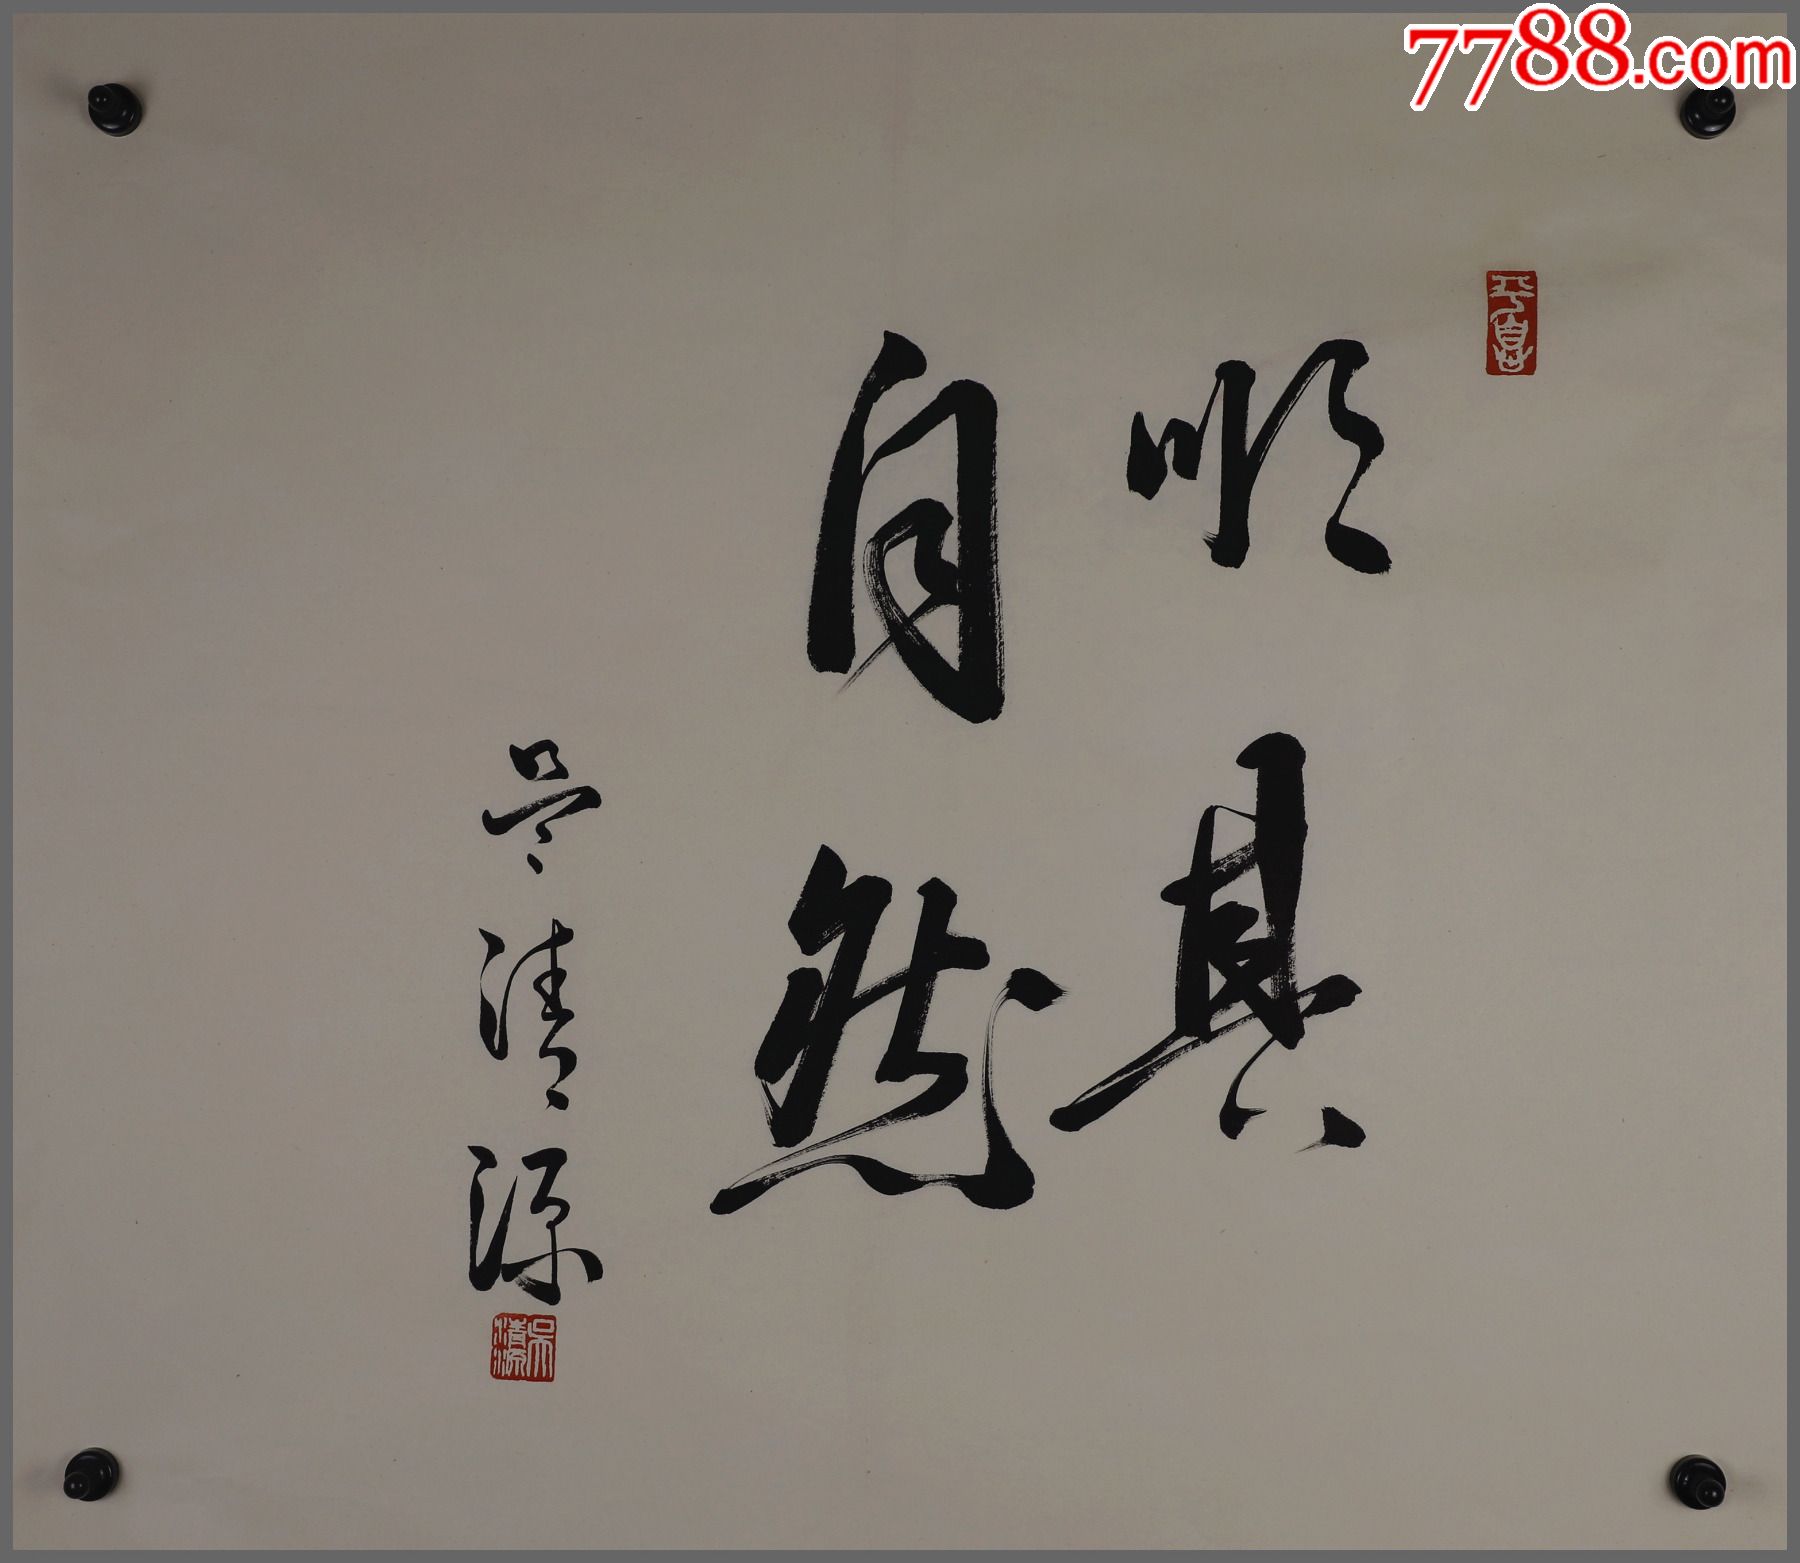 7788.com
顺其
自然
吴清源
吴清源